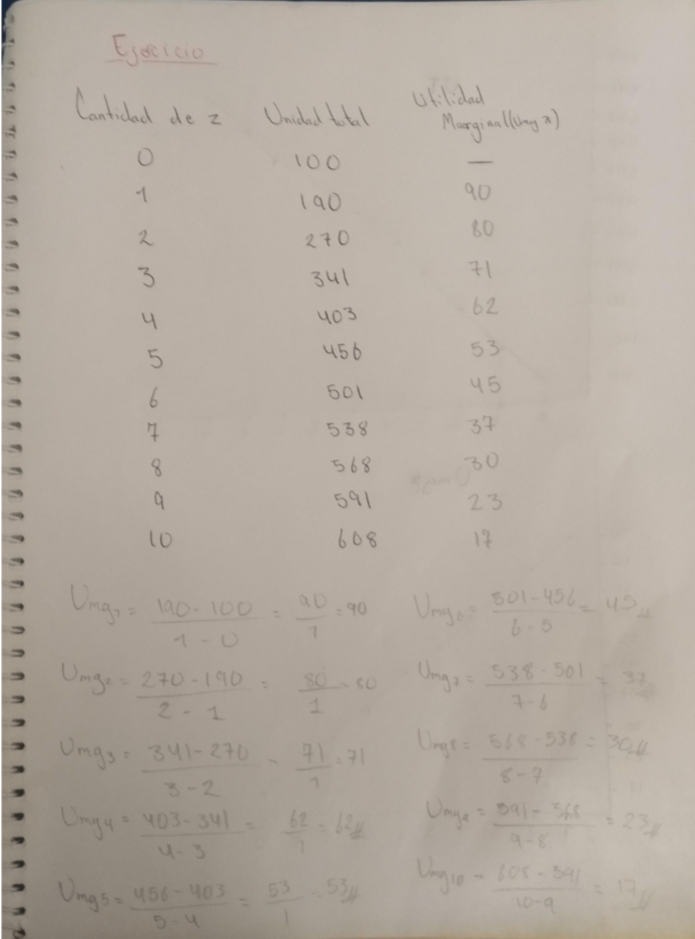 Ejercicio
Cantidad de z Unidad total Utilidad Marginal (Umg x)
0 100 —
1 190 90
2 270 80
3 341 71
4 403 62
5 456 53
6 501 45
7 538 37
8 568 30
9 591 23
10 608 17
Umg1 = 190-100 / 1-0 = 90 / 1 = 90
Umg2 = 270-190 / 2-1 = 80 / 1 = 80
Umg3 = 341-270 / 3-2 = 71 / 1 = 71
Umg4 = 403-341 / 4-3 = 62 / 1 = 62
Umg5 = 456-403 / 5-4 = 53 / 1 = 53
Umg6 = 501-456 / 6-5 = 45
Umg7 = 538-501 / 7-6 = 37
Umg8 = 568-538 / 8-7 = 30
Umg9 = 591-568 / 9-8 = 23
Umg10 = 608-591 / 10-9 = 17